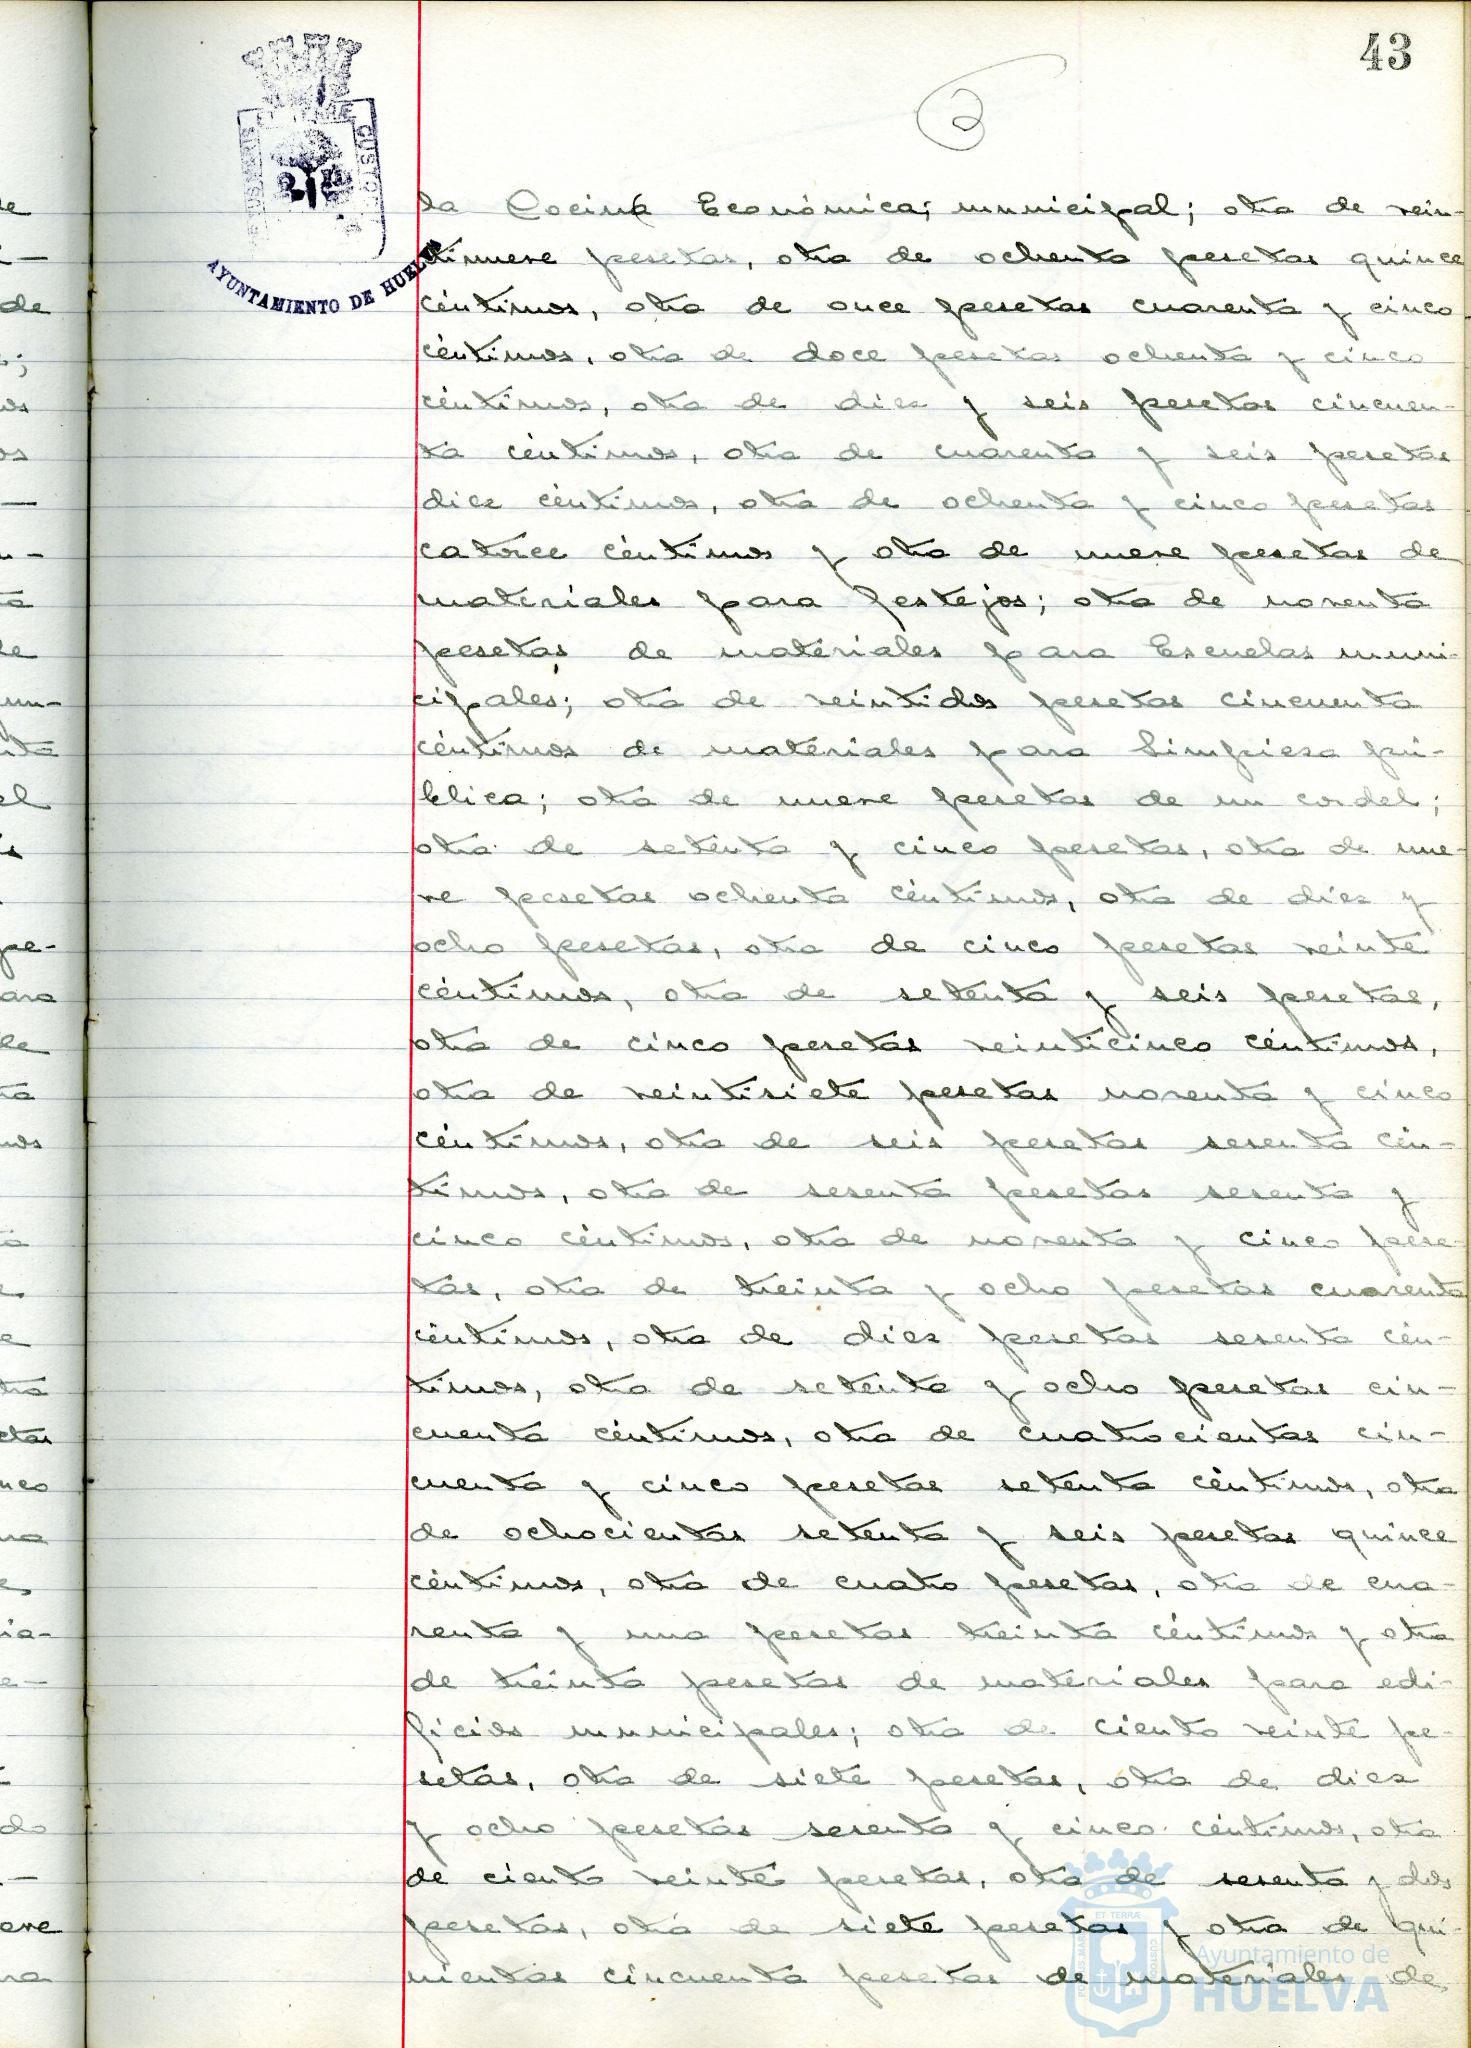 43
la Cocina Económica; municipal; otra de vein-
tinueve pesetas, otra de ochenta pesetas quince
céntimos, otra de once pesetas cuarenta y cinco
céntimos, otra de doce pesetas ochenta y cinco
céntimos, otra de diez y seis pesetas cincuen-
ta céntimos, otra de cuarenta y seis pesetas
diez céntimos, otra de ochenta y cinco pesetas
catorce céntimos y otra de nueve pesetas de
materiales para festejos; otra de noventa
pesetas de materiales para Escuelas muni-
cipales; otra de veintidos pesetas cincuenta
céntimos de materiales para limpieza pú-
blica; otra de nueve pesetas de un cordel;
otra de setenta y cinco pesetas, otra de nue-
ve pesetas ochenta céntimos, otra de diez y
ocho pesetas, otra de cinco pesetas veinte
céntimos, otra de setenta y seis pesetas,
otra de cinco pesetas veinticinco céntimos,
otra de veintisiete pesetas noventa y cinco
céntimos, otra de seis pesetas sesenta cén-
timos, otra de sesenta pesetas sesenta y
cinco céntimos, otra de noventa y cinco pese-
tas, otra de treinta y ocho pesetas cuarenta
céntimos, otra de diez pesetas sesenta cén-
timos, otra de setenta y ocho pesetas cin-
cuenta céntimos, otra de cuatrocientas cin-
cuenta y cinco pesetas setenta céntimos, otra
de ochocientas setenta y seis pesetas quince
céntimos, otra de cuatro pesetas, otra de cua-
renta y una pesetas treinta céntimos y otra
de treinta pesetas de materiales para edi-
ficios municipales; otra de ciento veinte pe-
setas, otra de siete pesetas, otra de diez
y ocho pesetas sesenta y cinco céntimos, otra
de ciento veinte pesetas, otra de sesenta y dos
pesetas, otra de siete pesetas y otra de qui-
nientas cincuenta pesetas de materiales de
AYUNTAMIENTO DE HUELVA
Ayuntamiento de
HUELVA